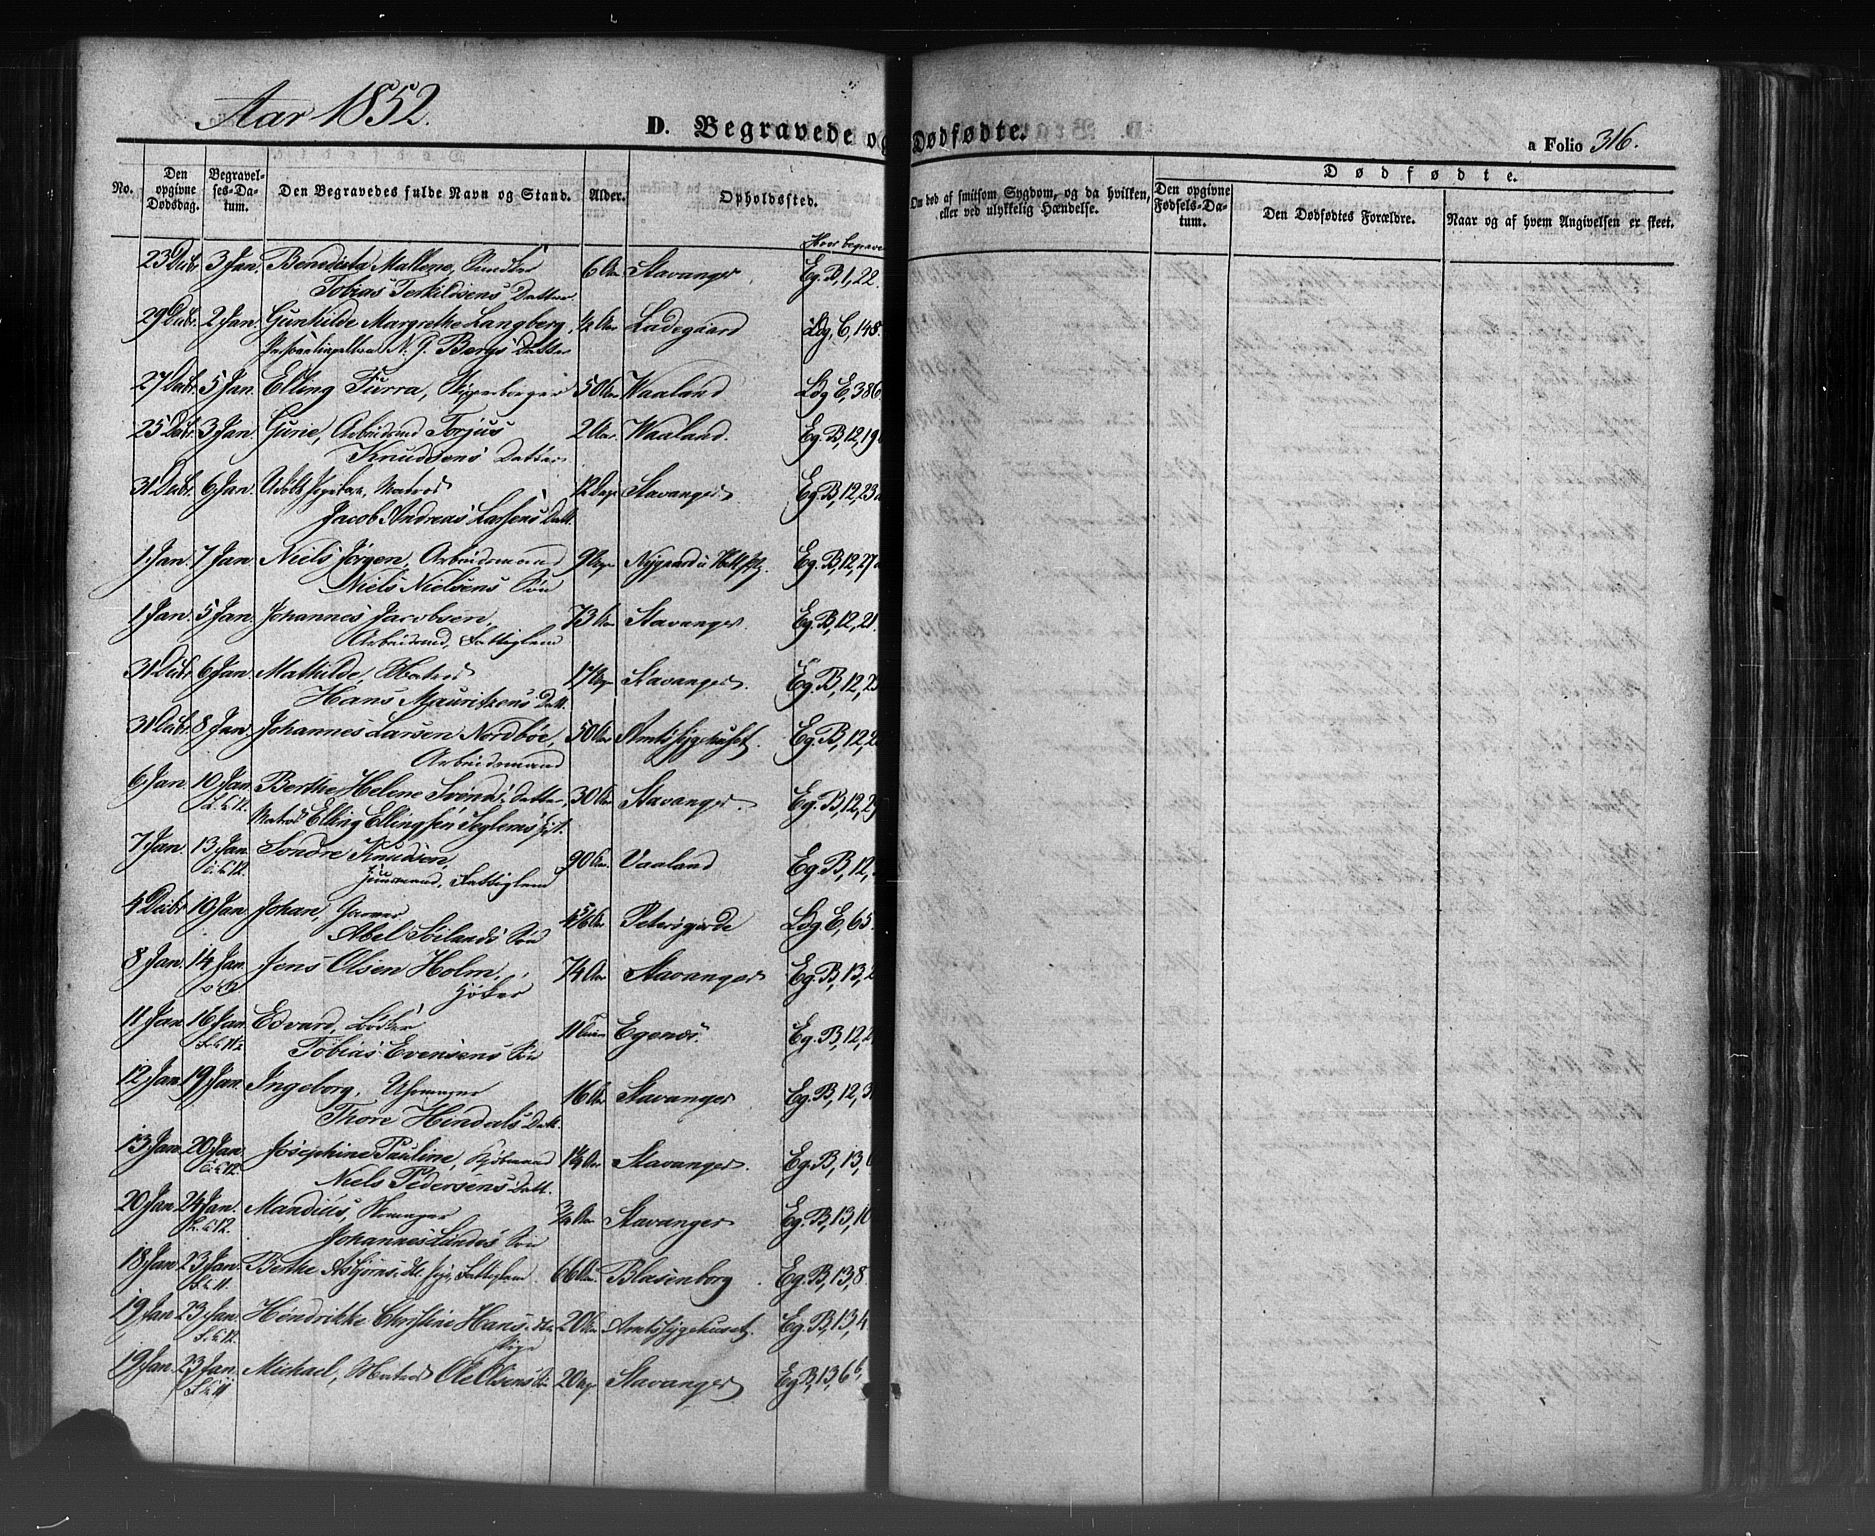 Aar 1852.
D. Begravede og Dødfødte.
a Folio 316.
No.
Den opgivne Dødsdag.
Begravelses-Datum.
Den Begravedes fulde Navn og Stand.
Alder.
Opholdssted.
Om død af smitsom Sygdom, og da hvilken, eller ved ulykkelig Hændelse.
Dødfødte.
Den opgivne Fødsels-Datum.
Den Dødfødtes Forældre.
Naar og af hvem Angivelsen er skeet.
Hvor begravet
23 Decbr 3 Jan. Benedicta Mallene, 6 Aar Stavanger Eg. B, 1, 22.
Tobias Terkildsens Datter
29 Decbr 2 Jan. Gunhilde Margrethe Langberg, ½ Aar Ladegaard Ldg. C, 148.
N. G. Bergs Datter
27 Decbr 5 Jan. Elling Furra, Skipperborger 50 Aar Waaland Ldg E, 386
25 Decbr 3 Jan Gurie, Arbeidsmd Torjus 2 Aar. Waaland. Eg. B, 12, 19
Knudsens Datter
31 Decbr 6 Jan. Matros 12 Dage Stavanger Eg. B, 12, 23
Jacob Andreas Larsens Datt.
1 Jan. 7 Jan Niels Jørgen, Arbeidsmand 9 Nygaard i Eg. B, 12, 27
Niels Nielsens Søn
1 Jan. 5 Jan. Johannes Jacobsen, 73 Aar Stavanger. Eg. B, 12, 21.
Arbeidsmd, Fattiglem
31 Decbr 6 Jan. Mathilde, Matros 17 Stavanger. Eg. B, 12, 23
Hans Mauritzens Datt.
31 Decbr 8 Jan Johannes Larsen Nordbøe, 50 Aar Amtssygehuset. Eg. B, 12, 2
Arbeidsmand
6 Jan 10 Jan. Berthe Helene Svends Datter, 30 Aar Stavanger. Eg. B, 12, 29
Matros Elling Ellingsen Seglems
7 Jan 13 Jan. Sondre Knudsen 90 Aar. Vaaland Eg. B, 12,
Huusmand, Fattiglem
4 Decbr 10 Jan Johan, Garver Petersgjerde Ldg E, 65.
Abel Soilands Søn
8 Jan. 14 Jan. Jens Olsen Holm, 74 Aar Stavanger Eg. B, 13, 2
Høker
11 Jan 16 Jan Edvard, Bødker 11 Egenæs. Eg. B, 12, 2
Tobias Evensens Søn
12 Jan 19 Jan. Ingeborg, Uhrmager 16 Aar Stavanger Eg. B, 12, 3
Thore Hindals Datt.
13 Jan. 20 Jan. Josephine Pauline, Kjøbmand 1¼ Aar Stavanger. Eg. B, 13,
Niels Pedersens Datt.
20 Jan 24 Jan. Mandius, ¾ Aar Stavanger Eg. B, 13, 10
Johannes Lindøs Søn
18 Jan. 23 Jan. Berthe Asbjørns. Dr. Pige, Fattiglem 66 Aar. Blasenborg. Eg. B, 13, 8
19 Jan 23 Jan. Hendrikke Christine Hans. Dr. 20 Aar Amtssygehuset. Eg. B, 13, 4
Pige
19 Jan. 23 Jan. Michael, Matros Ole Olsens Søn 20 Stavanger Eg B, 13, 6 b,